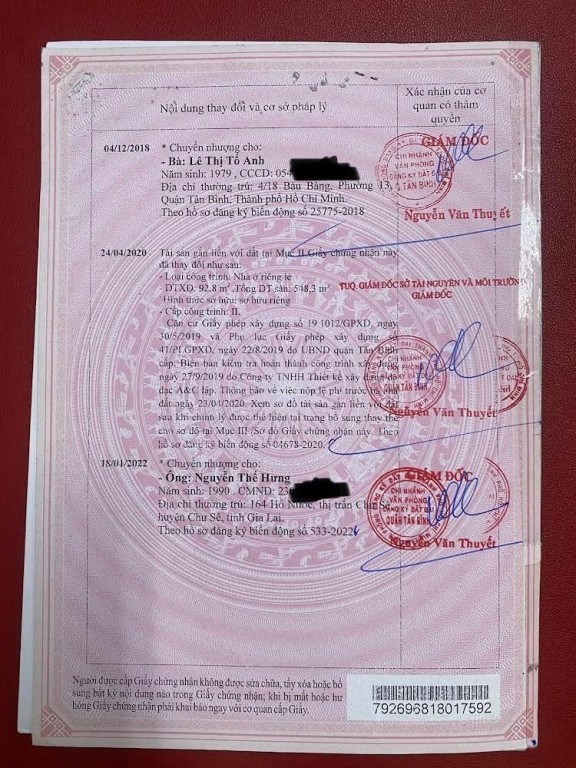 Nội dung thay đổi và cơ sở pháp lý
Xác nhận của cơ
quan có thẩm
quyền
04/12/2018 * Chuyển nhượng cho:
- Bà: Lê Thị Tố Anh
Năm sinh: 1979 , CCCD: 054
Địa chỉ thường trú: 4/18 Bàu Bàng, Phường 13,
Quận Tân Bình, Thành phố Hồ Chí Minh.
Theo hồ sơ đăng ký biến động số 25775-2018
GIÁM ĐỐC
CHI NHÁNH
VĂN PHÒNG
ĐĂNG KÝ ĐẤT Đ
Q. TÂN BÌNH
Nguyễn Văn Thuyết
24/04/2020 Tài sản gắn liền với đất tại Mục II Giấy chứng nhận này
đã thay đổi như sau:
- Loại công trình: Nhà ở riêng lẻ
- DTXD: 92,8 m². Tổng DT sàn: 548,3 m²
- Hình thức sở hữu: sở hữu riêng
- Cấp công trình: II.
- Căn cứ Giấy phép xây dựng số 19 1012/GPXD, ngày
30/5/2019 và Phụ lục Giấy phép xây dựng
41/PLGPXD, ngày 22/8/2019 do UBND quận Tân Bình
cấp. Biên bản kiểm tra hoàn thành công trình xây dựng
ngày 27/9/2019 do Công ty TNHH Thiết kế xây dựng đo
đạc A&C lập. Thông báo về việc nộp lệ phí trước bạ nhà
đất ngày 23/04/2020. Xem sơ đồ tài sản gắn liền với đất
sau khi chỉnh lý được thể hiện tại trang bổ sung thay thế
cho sơ đồ tại Mục III /Sơ đồ Giấy chứng nhận này. Theo
hồ sơ đăng ký biến động số 04678-2020.
TUQ. GIÁM ĐỐC SỞ TÀI NGUYÊN VÀ MÔI TRƯỜNG
GIÁM ĐỐC
Q. TÂN BÌNH
Nguyễn Văn Thuyết
18/01/2022 * Chuyển nhượng cho:
- Ông: Nguyễn Thế Hưng
Năm sinh: 1990 , CMND: 23
Địa chỉ thường trú: 164 Hồ Nước, thị trấn Chư Sê,
huyện Chư Sê, tỉnh Gia Lai.
Theo hồ sơ đăng ký biến động số 533-2022
GIÁM ĐỐC
CHI NHÁNH
VĂN PHÒNG
ĐĂNG KÝ ĐẤT ĐAI
QUẬN TÂN BÌNH
Nguyễn Văn Thuyết
Người được cấp Giấy chứng nhận không được sửa chữa, tẩy xóa hoặc bổ
sung bất kỳ nội dung nào trong Giấy chứng nhận; khi bị mất hoặc hư
hỏng Giấy chứng nhận phải khai báo ngay với cơ quan cấp Giấy.
792696818017592